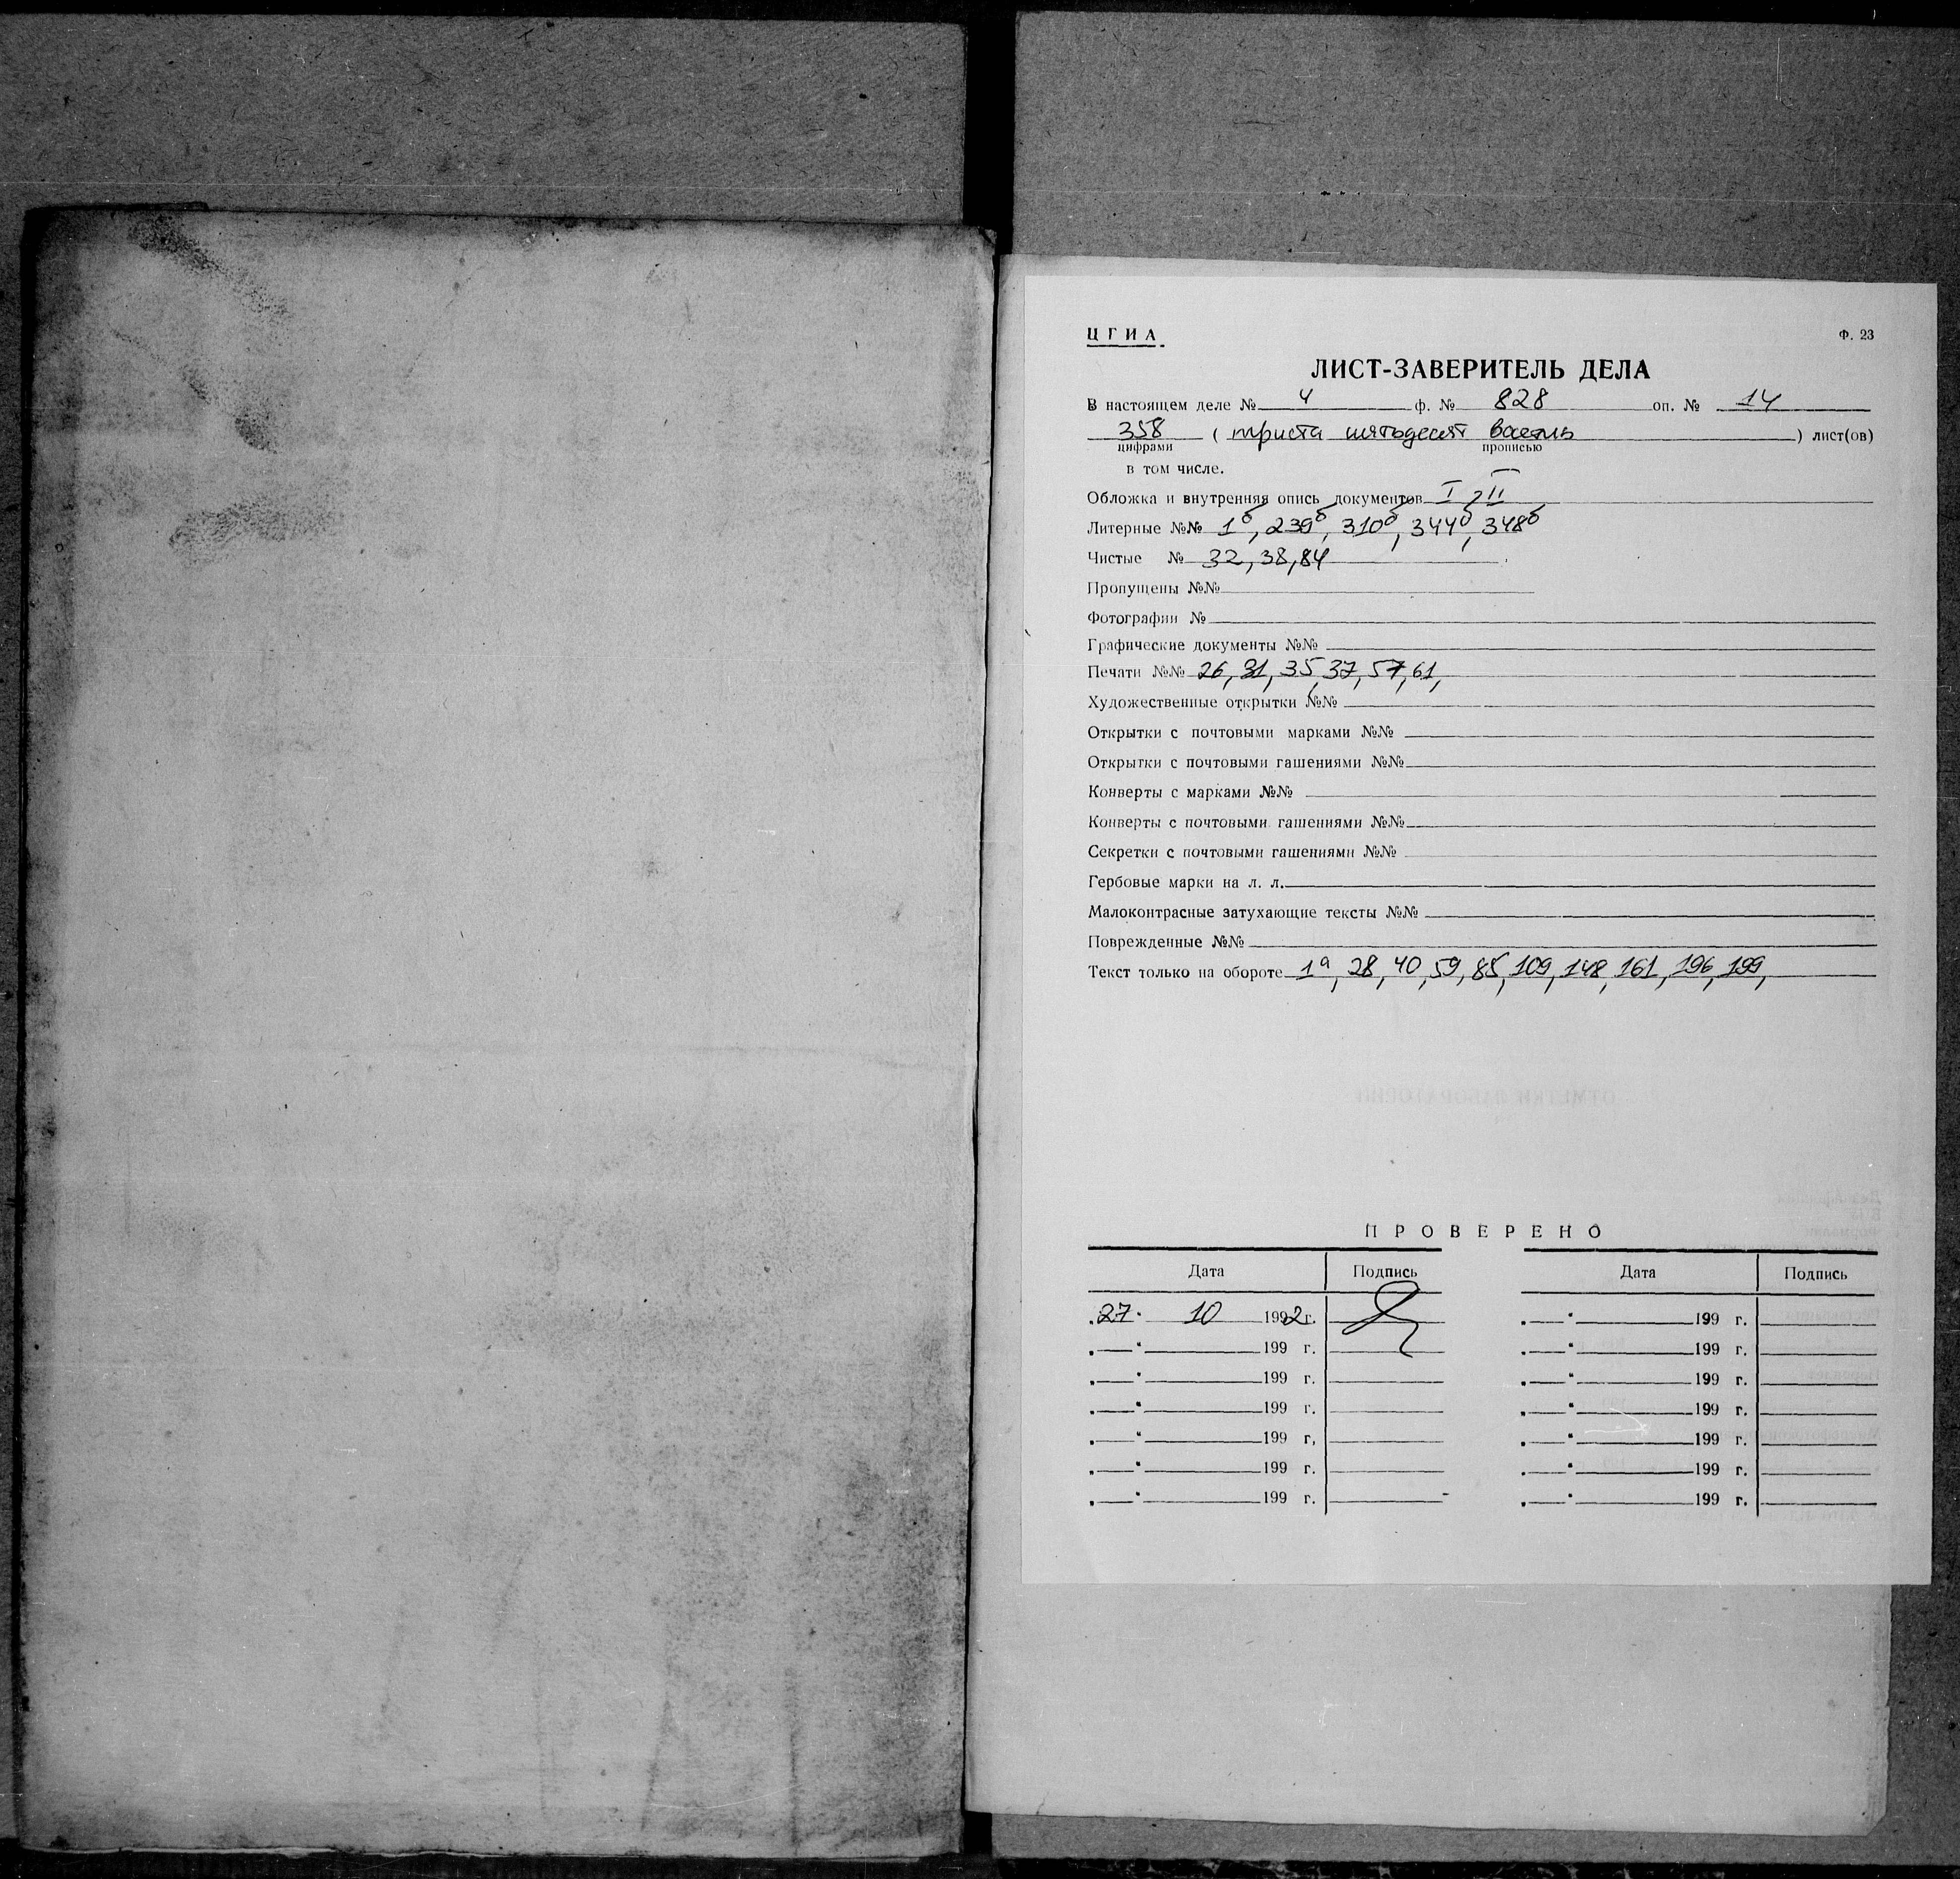 ЦГИА.
Ф. 23
ЛИСТ-ЗАВЕРИТЕЛЬ ДЕЛА
В настоящем деле № 4 ф. № 828 оп. № 14
358 (триста пятьдесят восемь) лист(ов)
цифрами прописью
в том числе.
Обложка и внутренняя опись документов I, II
Литерные №№ 1б, 239б, 310б, 344б, 348б
Чистые № 32, 38, 84
Пропущены №№
Фотографии №
Графические документы №№
Печати №№ 26, 31, 35, 37, 57, 61,
Художественные открытки №№
Открытки с почтовыми марками №№
Открытки с почтовыми гашениями №№
Конверты с марками №№
Конверты с почтовыми гашениями №№
Секретки с почтовыми гашениями №№
Гербовые марки на л. л.
Малоконтрасные затухающие тексты №№
Поврежденные №№
Текст только на обороте 1а, 28, 40, 59, 85, 109, 148, 161, 196, 199,
ПРОВЕРЕНО
Дата Подпись Дата Подпись
„27“ 10 1992г. „ “ 199 г.
„ “ 199 г. „ “ 199 г.
„ “ 199 г. „ “ 199 г.
„ “ 199 г. „ “ 199 г.
„ “ 199 г, „ “ 199 г.
„ “ 199 г. „ “ 199 г.
„ “ 199 г. „ “ 199 г.